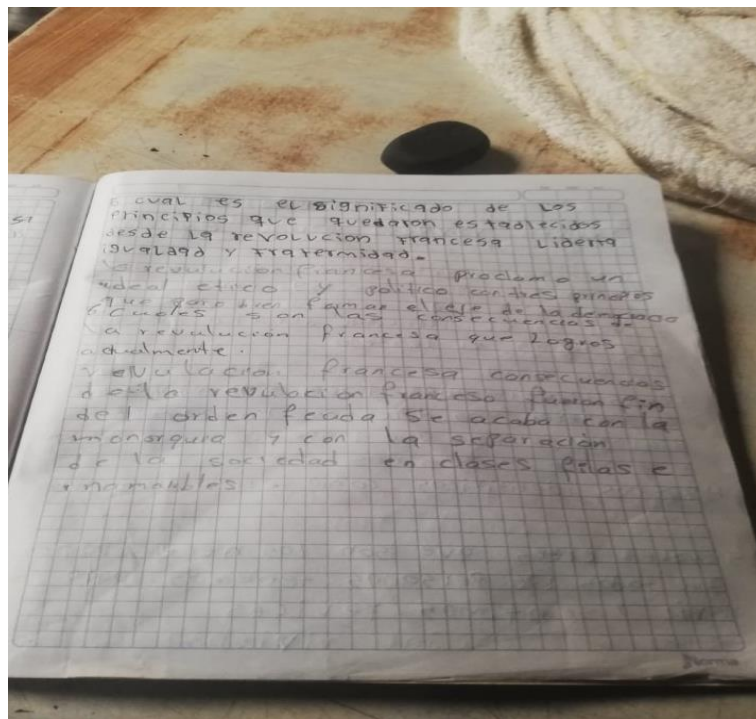 cual es el significado de los
Principios que quedaron establecidos
desde la revolucion francesa Liberta
igualdad y fraternidad.
la revulucion francesa proclamo un
ideal etico y politico con tres principes
que mas bien forman el eje de la democracia
Cuales son las consecuencias de
la revulucion francesa que Logros
actualmente.
revulacion francesa consecuencias
de la revulucion francesa fueron fin
del orden feuda se acaba con la
monarquia y con la separacion
de la sociedad en clases fijas e
Norma